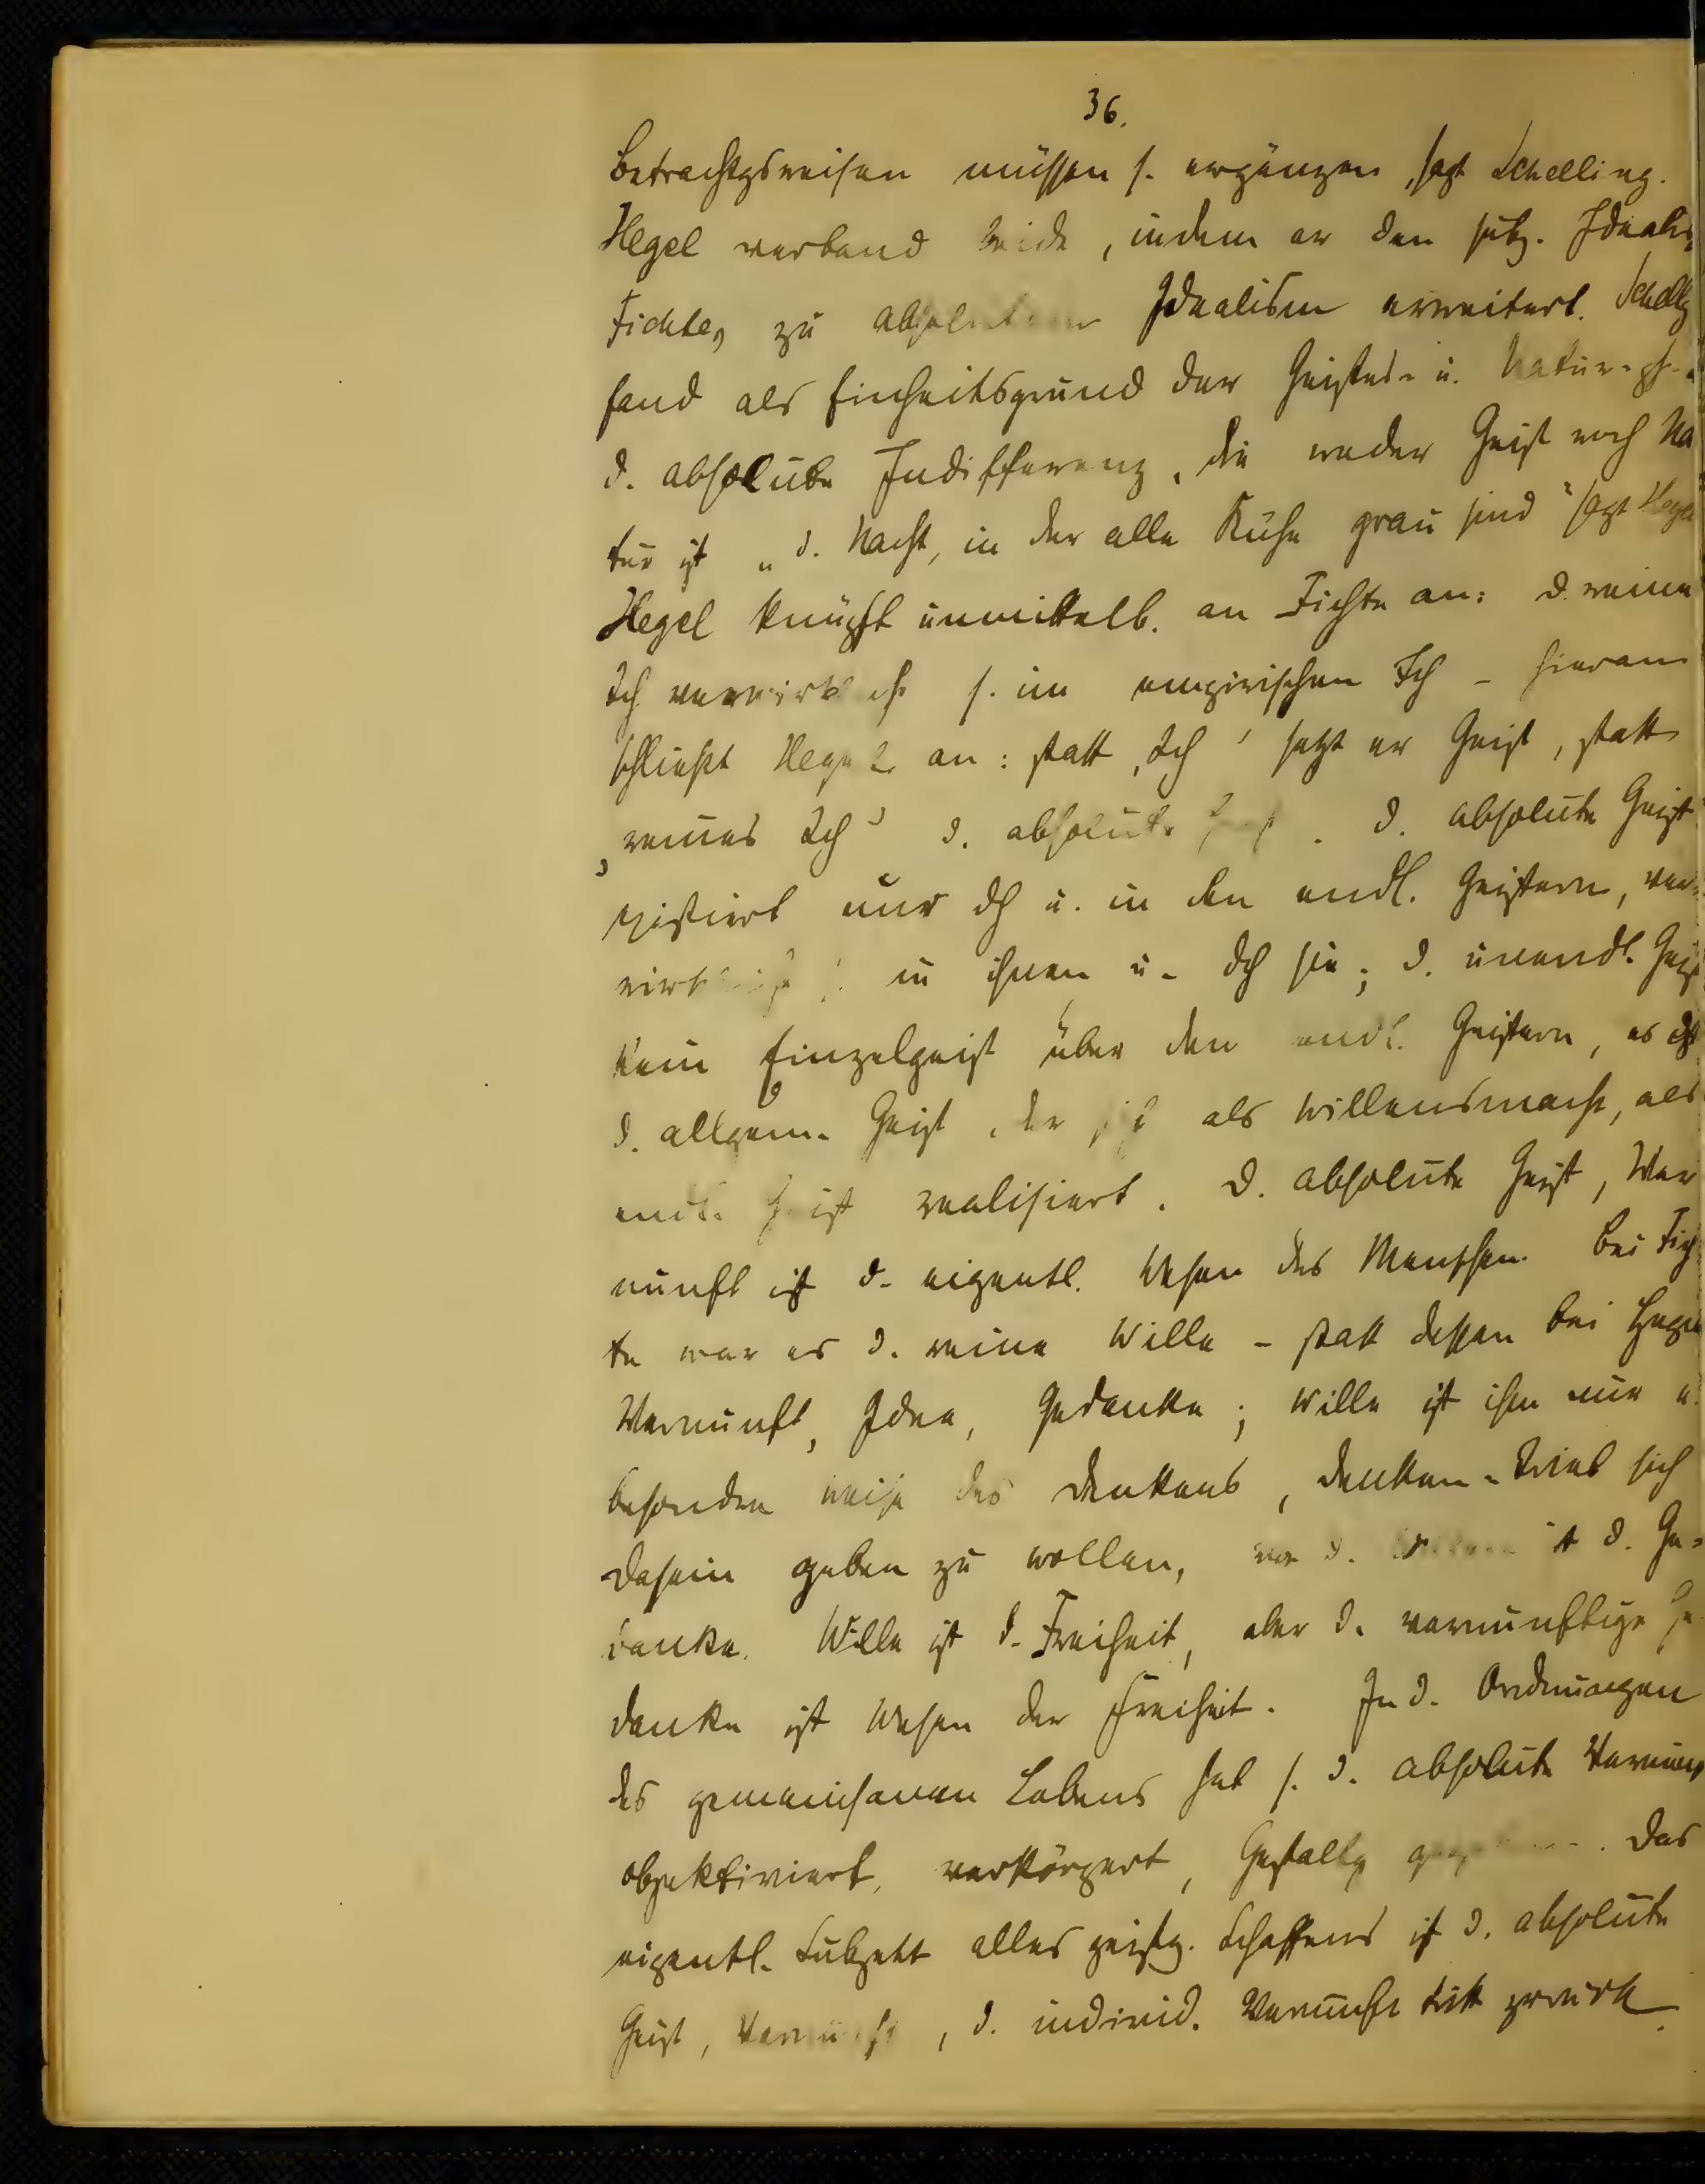 36.
Betrachtgsweisen müssen s. ergänzen, sagt Schelling.
Hegel verband beide, indem er den subj. Idealis
Fichtes zu absolutem Idealism erweitert. Schellg
fand als Einheitsgrund der Geistes- u. Natur-
d. absolute Indifferenz, die weder Geist noch Na
tur ist „d. Nacht, in der alle Kühe grau sind" sagt Hegel
Hegel knüpft unmittelb. an Fichte an: d. reine
Ich verwirklicht s. im empirischen Ich - hieran
schließt Hegel an: statt ‚Ich' setzt er Geist, statt
‚reines Ich' d. absolute Geist. D. absolute Geist
existiert nur dch u. in den endl. Geistern, ver-
wirklicht s. in ihnen u. dch sie; d. unendl. Geist
kein Einzelgeist über den endl. Geistern, es ist
d. allgem. Geist, der sich als Willensmacht, als
endl. Geist realisiert. D. absolute Geist, Ver
nunft ist d. eigentl. Wesen des Menschen. Bei Fich
te war es d. reine Wille - statt dessen bei Hegel
Vernunft, Idee, Gedanke; Wille ist ihm nur e.
besondre Weise des Denkens, Denken-Trieb sich
Dasein geben zu wollen, vor d. Willen ist d. Ge-
danke. Wille ist d. Freiheit, aber d. vernünftige Ge
danke ist Wesen der Freiheit. In d. Ordnungen
des gemeinsamen Lebens hat s. d. absolute Vernunft
objektiviert, verkörpert, Gestaltg gegeben. Das
eigentl. Subjekt alles geistg. Schaffens ist d. absolute
Geist, Vernunft, d. individ. Vernunft tritt zurück.